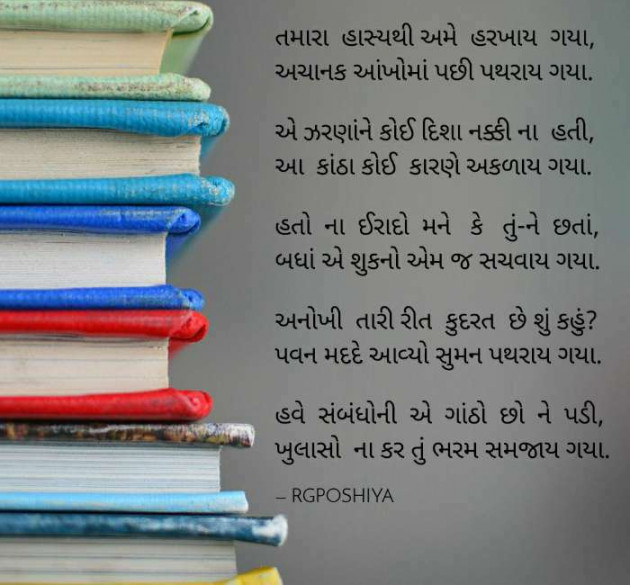 તમારા હાસ્યથી અમે હરખાય ગયા,
અચાનક આંખોમાં પછી પથરાય ગયા.
એ ઝરણાંને કોઈ દિશા નક્કી ના હતી,
આ કાંઠા કોઈ કારણે અકળાય ગયા.
હતો ના ઈરાદો મને કે તું-ને છતાં,
બધાં એ શુકનો એમ જ સચવાય ગયા.
અનોખી તારી રીત કુદરત છે શું કહું?
પવન મદદે આવ્યો સુમન પથરાય ગયા.
હવે સંબંધોની એ ગાંઠો છો ને પડી,
ખુલાસો ના કર તું ભરમ સમજાય ગયા.
– RGPOSHIYA